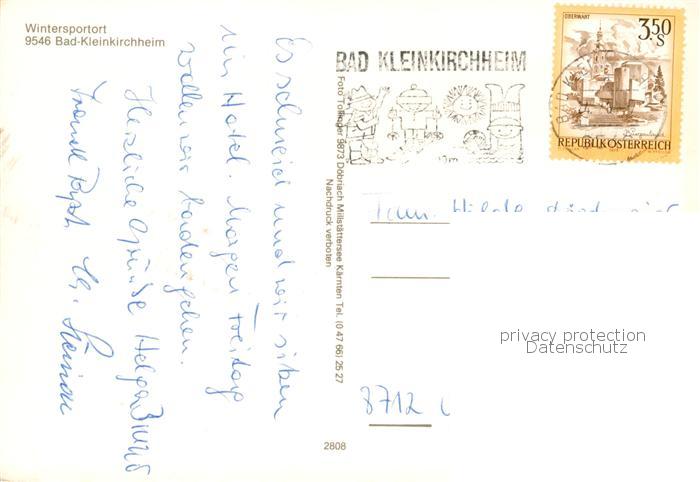 Wintersportort
9546 Bad-Kleinkirchheim
Es schneid und wir sitzen
im Hotel. Morgen Freitag
wollen wir baden gehen.
Herzliche Grüße Helga
BAD KLEINKIRCHHEIM
OBERWART
3,50 S
REPUBLIK ÖSTERREICH
Foto Tollinger 9873 Döbriach Millstättersee Kärnten Tel. (0 47 66) 25 27
Nachdruck verboten
Fam. Hilde
privacy protection
Datenschutz
8712
2808